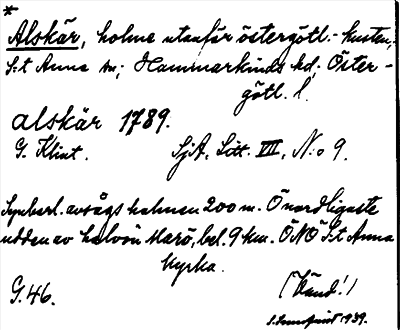 *
Alskär, holme utanför östergötl.-kusten;
S:t Anna sn; Hammarkinds hd; Öster-
götl. l.
alskär 1789.
G. Klint. SjA, Litt. VII, N:o 9.
avsågs holmen 200 m. Ö nordligaste
udden av halvön Marö, bel. 9 km. ÖNÖ S:t Anna
kyrka.
G. 46. (Vänd!)
1939.